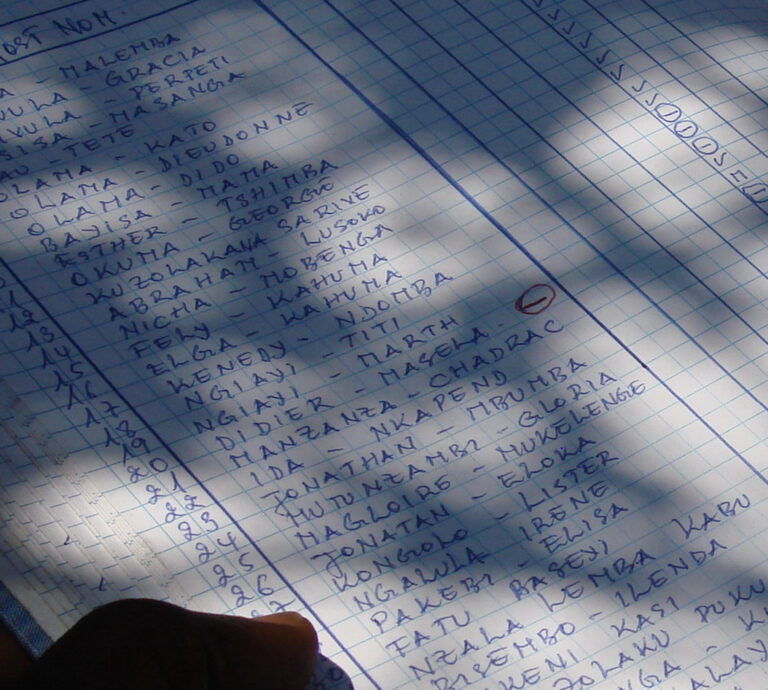 POST NOM.
A - MALEMBA
VULA - GRACIA
VULA - PERPETI
SISA - MASANGA
AU - TETE
OLAMA - KATO
OLAMA - DIEUDONNE
OLAMA - DIDO
BAYISA - MAMA
ESTHER - TSHIMBA
OKUMA - GEORGIO
KUZOLAKAVA SARIVE
12 ABRAHAM - LUSOKO
13 NICHA - MOBENGA
14 FELY - KAHUMA
15 ELGA - KAHUMA
16 KENEDY - NDOMBA
17 NGIAYI - TITI
18 NGIAYI - MARTH
19 DIDIER - MASELA.
20 MANZANZA - CHADRAC
21 IDA - NKAPEND
22 JONATHAN - MBUMBA
23 MUTUNZAMBI - GLORIA
24 MAGLOIRE - MUKELENGE
25 JONATAN - ELOKA
26 KONGOLO - LISTER
27 NGALULA IRENE
PAKEBI - ELISA
FATU BASEYI
NZALA LEMBA KABU
BISEMBO - ILENDA
KENI KASI
ZOLAKU PUKU